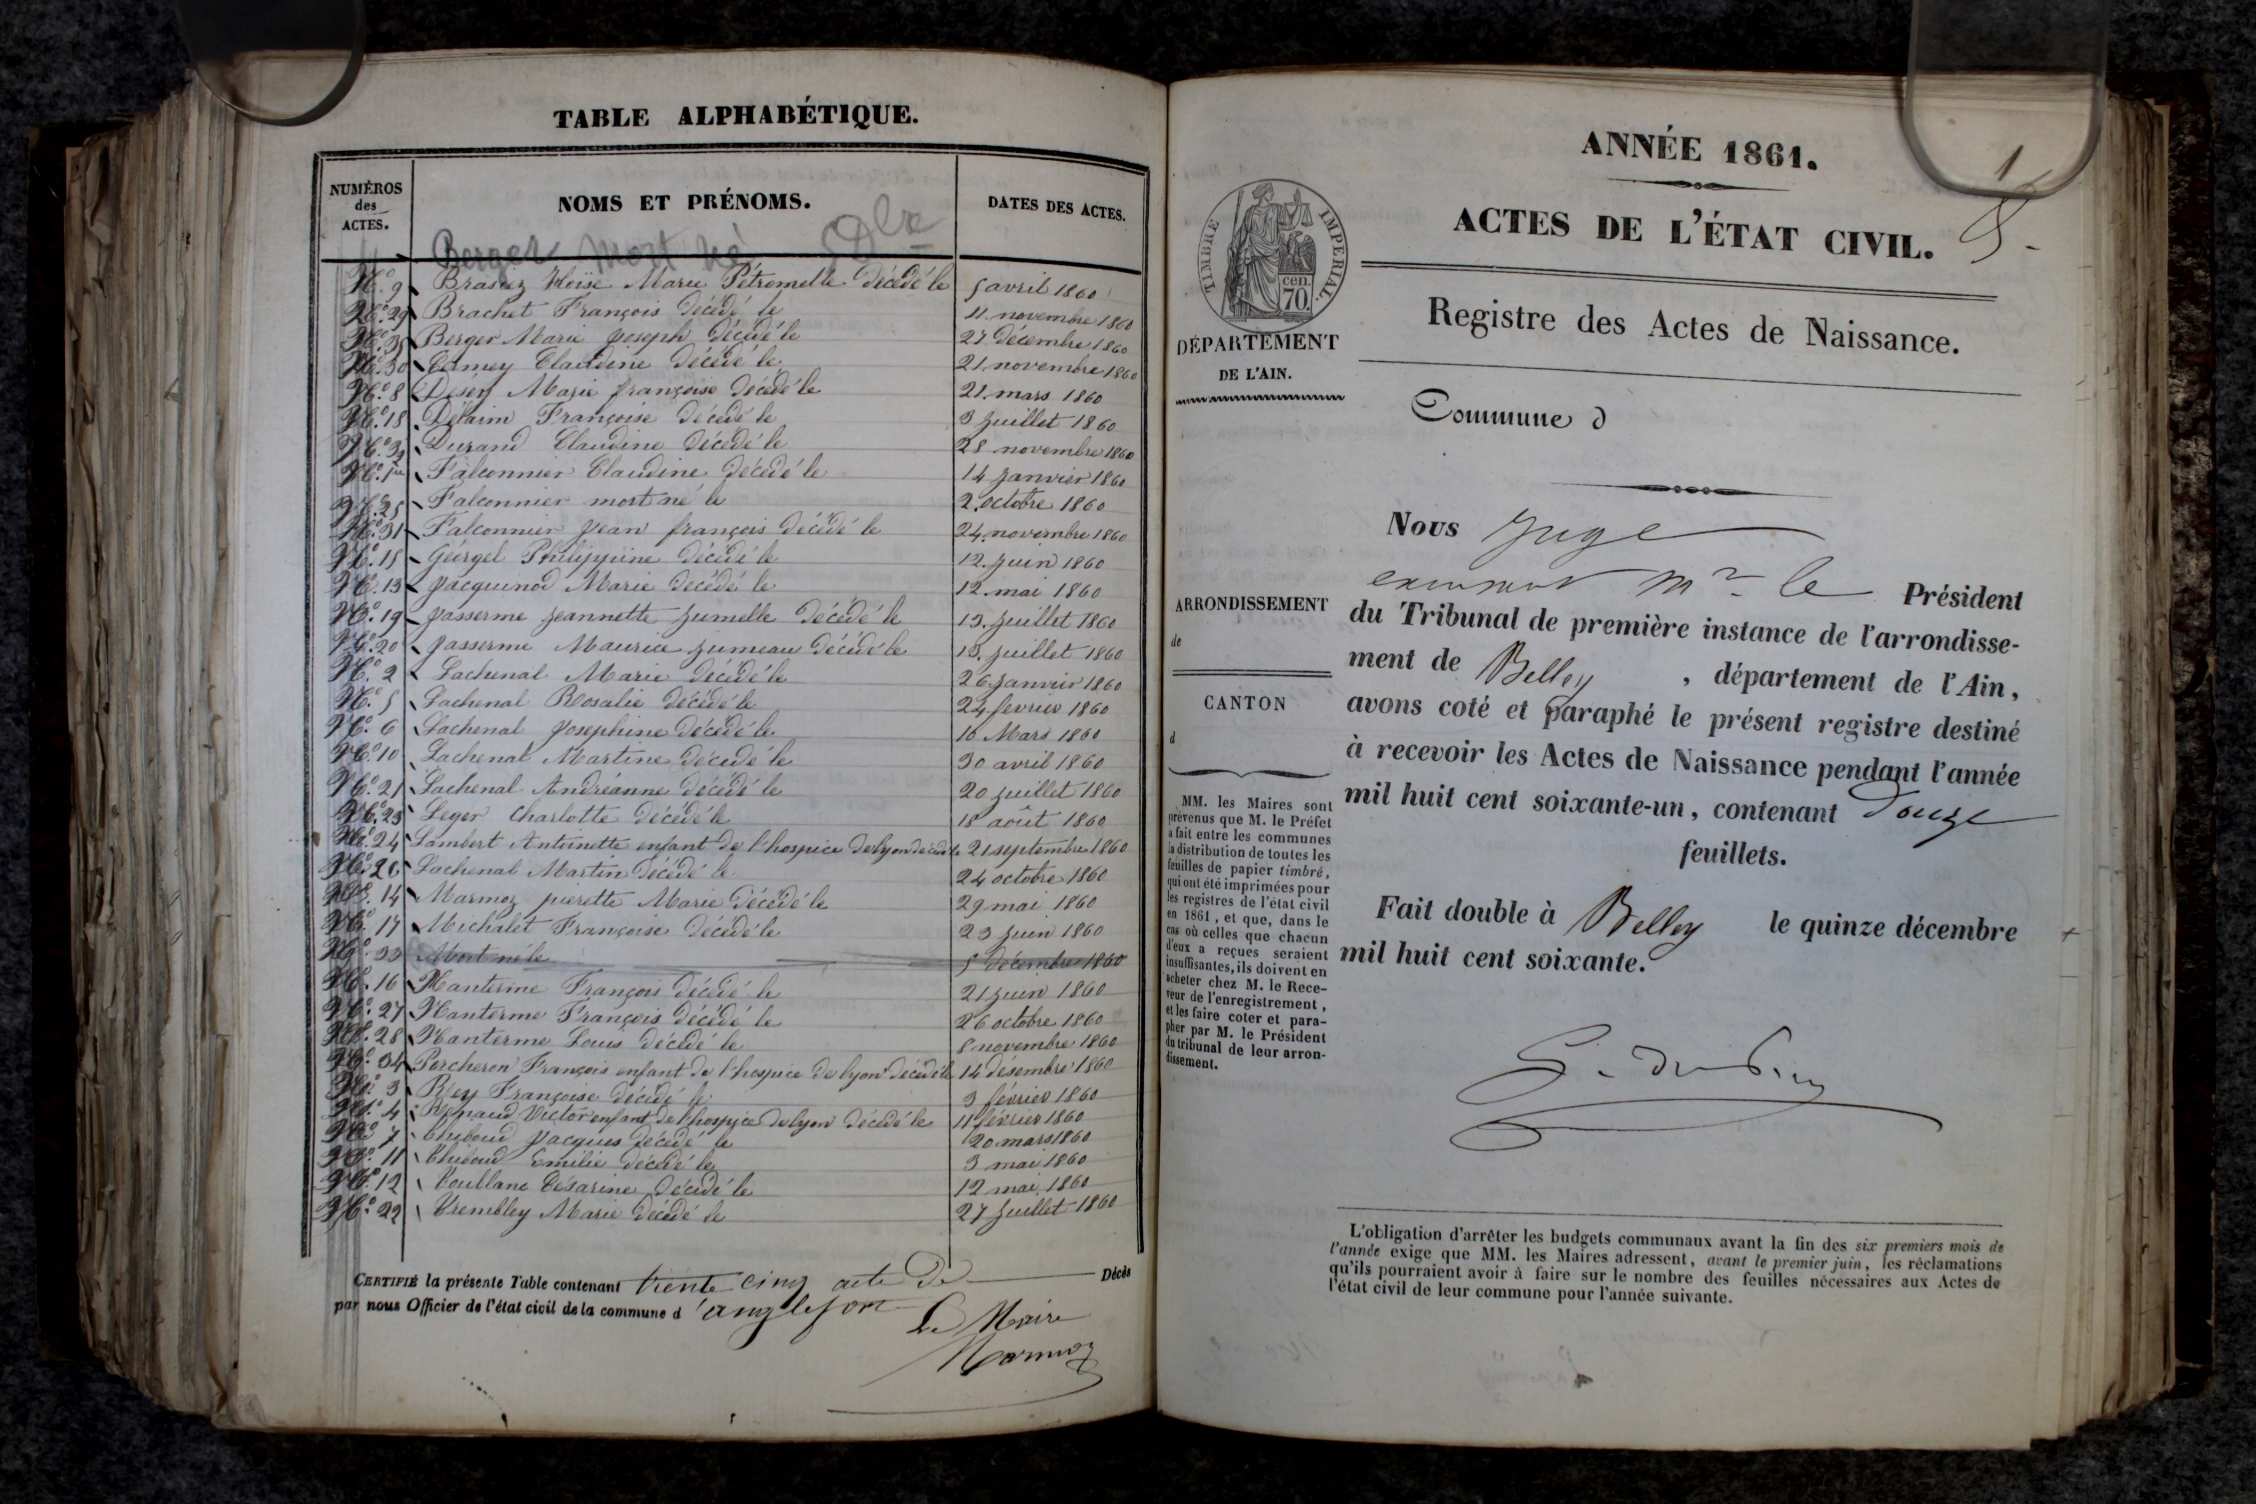 TABLE ALPHABÉTIQUE.
NUMÉROS des ACTES. NOMS ET PRÉNOMS. DATES DES ACTES.
Berger mort né
No. 9 Marie Pétronelle décédé le 5 avril 1860
No. 29 Brachet François décédé le 11 novembre 1860
No. 35 Berger Marie Joseph décédé le 27 décembre 1860
No. 30 Claudine décédé le 21 novembre 1860
No. 8 Marie françoise décédé le 21 mars 1860
No. 18 Françoise décédé le 3 juillet 1860
No. 32 Durand Claudine décédé le 28 novembre 1860
No. 1er Falconnier Claudine décédé le 14 janvier 1860
No. 25 Falconnier mort né le 2 octobre 1860
No. 31 Falconnier Jean françois décédé le 24 novembre 1860
No. 15 Philippine décédé le 12 juin 1860
No. 13 Jacquinod Marie décédé le 12 mai 1860
No. 19 Jasserme Jeannette jumelle décédé le 13 juillet 1860
No. 20 Jasserme Maurice jumeau décédé le 13 juillet 1860
No. 2 Lachenal Marie décédé le 26 janvier 1860
No. 5 Lachenal Rosalie décédé le 24 fevrier 1860
No. 6 Lachenal Josephine décédé le 10 Mars 1860
No. 10 Lachenal Martine décédé le 30 avril 1860
No. 21 Lachenal Andréanne décédé le 20 juillet 1860
No. 23 Leger Charlotte décédé le 18 août 1860
No. 24 Lambert Antoinette enfant de l'hospice de lyon décédé le 21 septembre 1860
No. 26 Lachenal Martin décédé le 24 octobre 1860
No. 14 Marmoz pierette Marie décédé le 29 mai 1860
No. 17 Michalet Françoise décédé le 23 juin 1860
No. 33 Mort né le 5 décembre 1860
No. 16 Nanterme François décédé le 21 juin 1860
No. 27 Nanterme François décédé le 26 octobre 1860
No. 28 Nanterme Louis décédé le 8 novembre 1860
No. 34 Porcheron François enfant de l'hospice de lyon décédé le 14 désembre 1860
No. 3 Rey Françoise décédé le 3 février 1860
No. 4 Victor enfant de l'hospice de lyon décédé le 11 février 1860
No. 7 Thiboud Jacques décédé le 20 mars 1860
No. 11 Thiboud Emilie décédé le 3 mai 1860
No. 12 Césarine décédé le 12 mai 1860
No. 22 Trembley Marie décédé le 27 juillet 1860
CERTIFIÉ la présente Table contenant trente cinq acte de Décès
par nous Officier de l'état civil de la commune d'anglefort
Le Maire
Marmoz
1
ANNÉE 1861.
ACTES DE L'ÉTAT CIVIL.
TIMBRE IMPERIAL.
70 cen.
DÉPARTEMENT
DE L'AIN.
Registre des Actes de Naissance.
Commune d
ARRONDISSEMENT
de
CANTON
d
MM. les Maires sont
prévenus que M. le Préfet
a fait entre les communes
la distribution de toutes les
feuilles de papier timbré,
qui ont été imprimées pour
les registres de l'état civil
en 1861, et que, dans le
cas où celles que chacun
d'eux a reçues seraient
insuffisantes, ils doivent en
acheter chez M. le Rece-
veur de l'enregistrement,
et les faire coter et para-
pher par M. le Président
du tribunal de leur arron-
dissement.
Nous Juge
Mr le Président
du Tribunal de première instance de l'arrondisse-
ment de Belley, département de l'Ain,
avons coté et paraphé le présent registre destiné
à recevoir les Actes de Naissance pendant l'année
mil huit cent soixante-un, contenant Douze
feuillets.
Fait double à Belley le quinze décembre
mil huit cent soixante.
L'obligation d'arrêter les budgets communaux avant la fin des six premiers mois de
l'année exige que MM. les Maires adressent, avant le premier juin, les réclamations
qu'ils pourraient avoir à faire sur le nombre des feuilles nécessaires aux Actes de
l'état civil de leur commune pour l'année suivante.